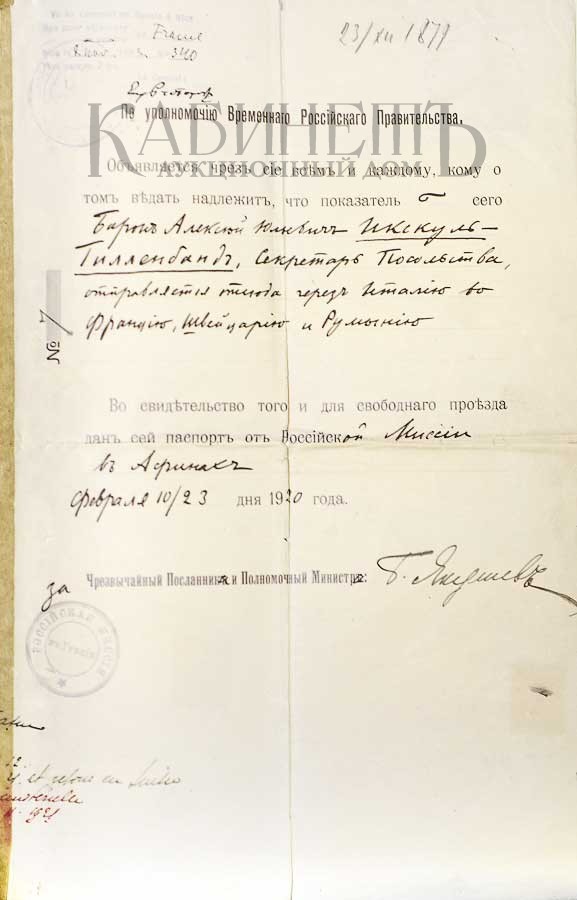 France
23/XII 1877
340
По уполномочію Временнаго Россійскаго Правительства.
КАБИНЕТЪ
АУКЦИОННЫЙ ДОМ
Объявляется чрезъ сіе всѣмъ и каждому, кому о
томъ вѣдать надлежитъ, что показатель сего
Баронъ Алексѣй Юльевичъ Икскуль-
Гилленбандъ, Секретарь Посольства,
отправляется отсюда черезъ Италію во
Францію, Швейцарію и Румынію
№ 7
Во свидѣтельство того и для свободнаго проѣзда
данъ сей паспортъ отъ Россійской Миссіи
въ Афинахъ
Февраля 10/23 дня 1920 года.
за Чрезвычайный Посланника и Полномочный Министра:
РОССІЙСКАЯ МИССІЯ
въ Греціи
et retour en
1921